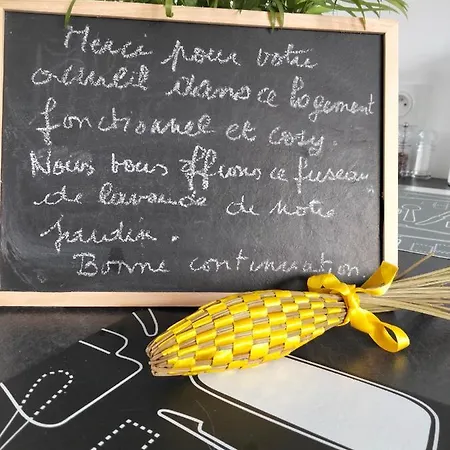 Merci pour votre
accueil dans ce logement
fonctionnel et cosy.
Nous vous offrons ce fuseau
de lavande de notre
jardin.
Bonne continuation.